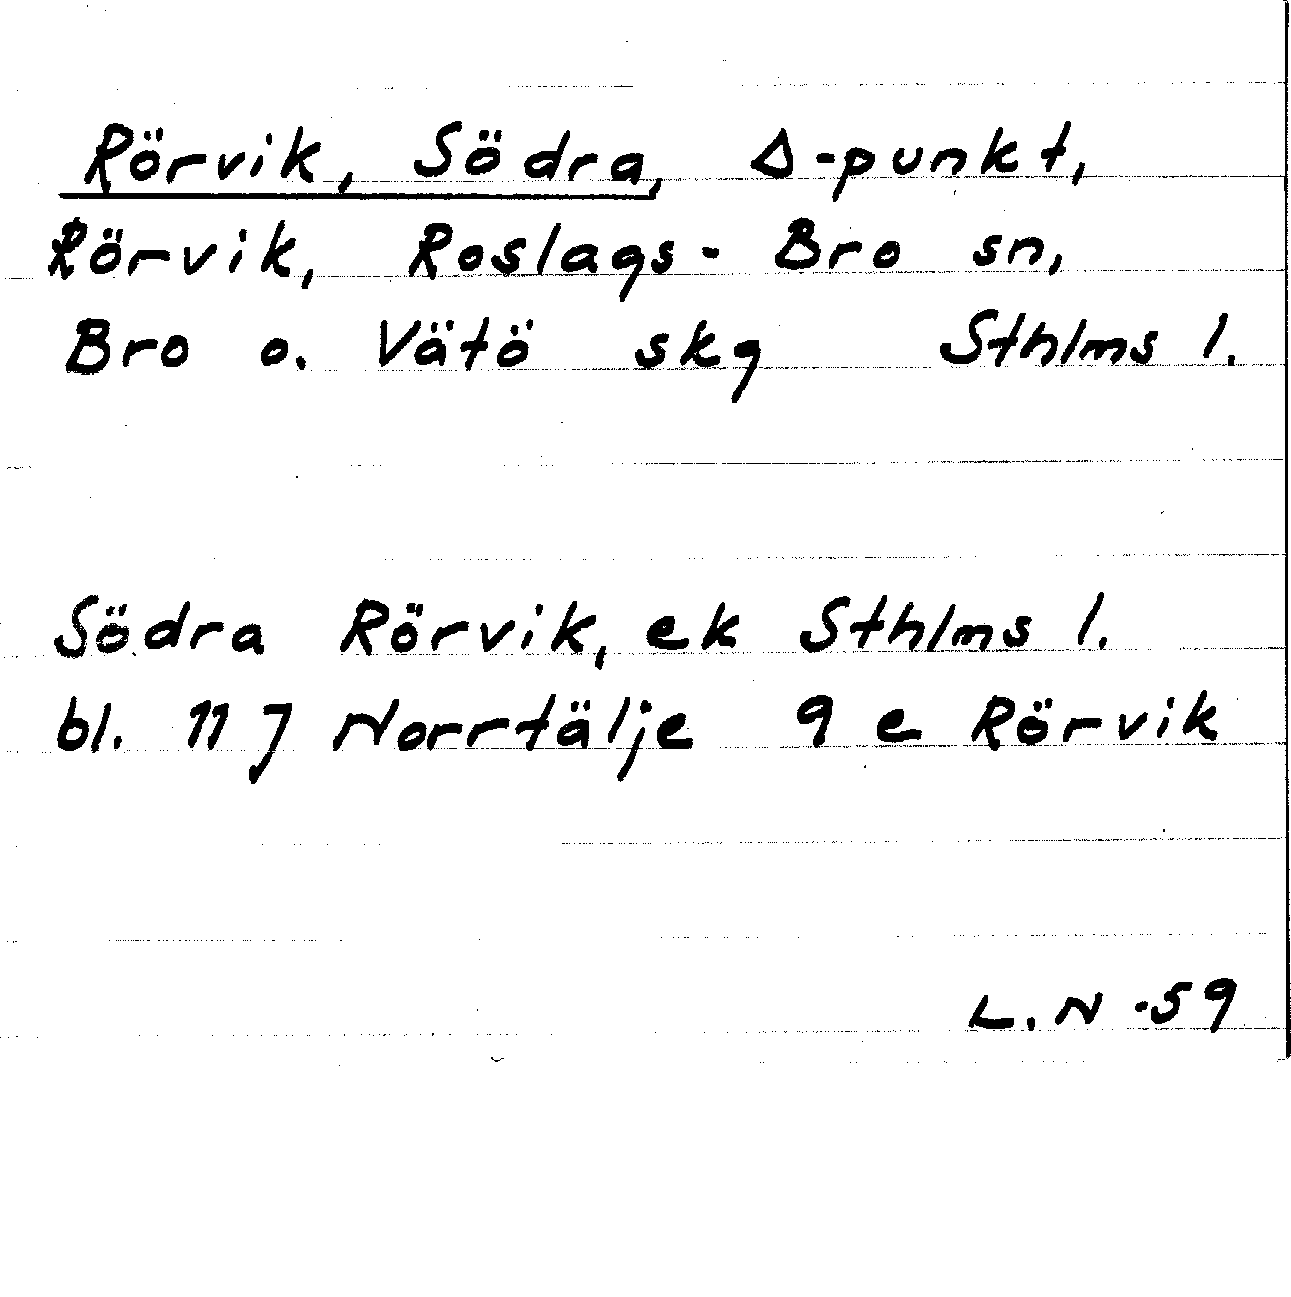 Rörvik, Södra, Δ-punkt,
Rörvik, Roslags-Bro sn,
Bro o. Vätö skg Sthlms l.
Södra Rörvik, ek Sthlms l.
bl. 11 J Norrtälje 9 e Rörvik
L.N -59